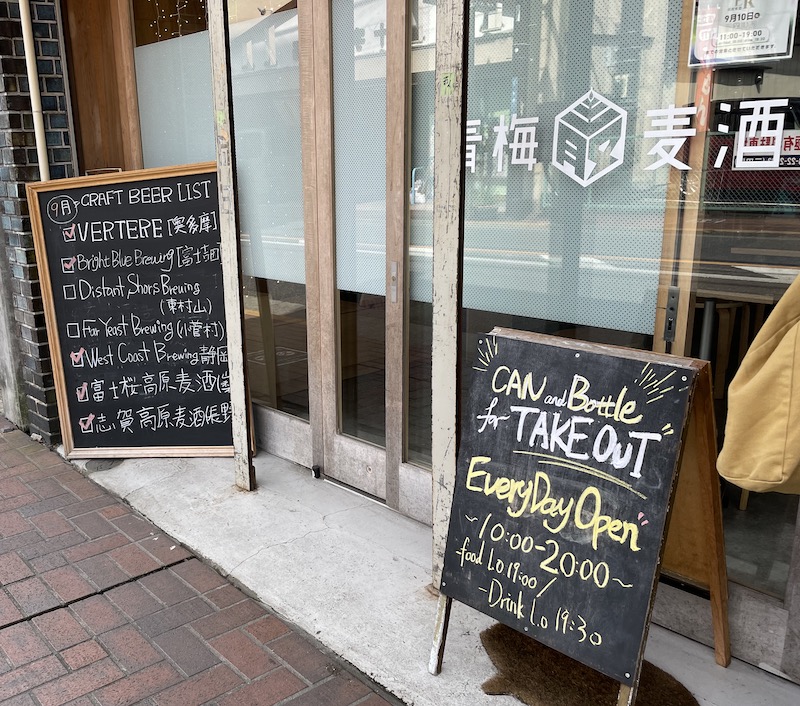 9月 CRAFT BEER LIST
VERTERE [奥多摩]
Bright Blue Brewing [富士吉田
Distant Shores Brewing
(東村山)
Far Yeast Brewing (小菅村)
West Coast Brewing 静岡
富士桜高原麦酒
志賀高原麦酒(長野
青梅 麦酒
9月10日
11:00-19:00
CAN and Bottle
for TAKE OUT
EveryDay Open
~10:00-20:00~
food l.o 19:00/
-Drink l.o 19:30